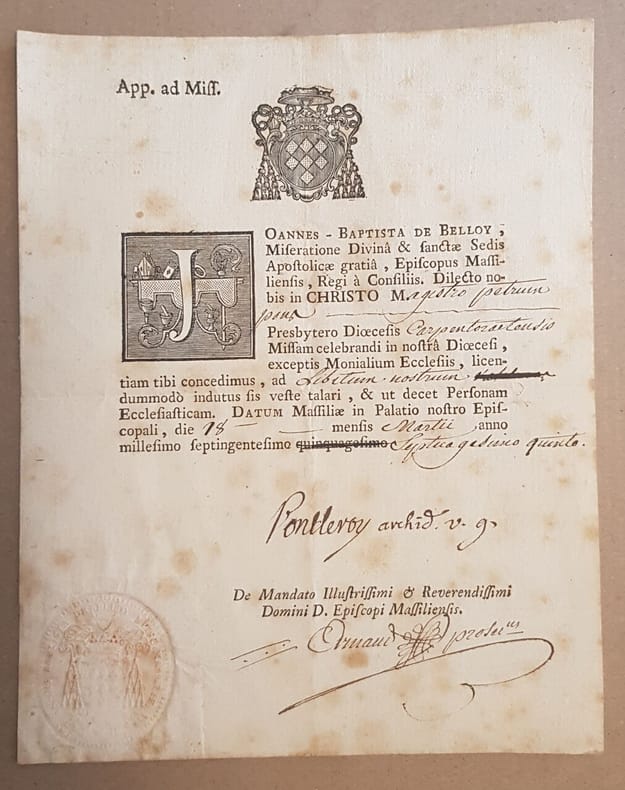 App. ad Miſſ.
JOANNES - BAPTISTA DE BELLOY ,
Miſeratione Divinâ & ſanctæ Sedis
Apoſtolicæ gratiâ , Epiſcopus Maſſi-
lienſis , Regi à Conſiliis. Dilecto no-
bis in CHRISTO Magistro petrum
pons
Presbytero Diœceſis Carpentoractensis
Miſſam celebrandi in noſtrâ Diœceſi ,
exceptis Monialium Eccleſiis , licen-
tiam tibi concedimus , ad Libitum nostrum
dummodò indutus ſis veſte talari , & ut decet Perſonam
Eccleſiaſticam. DATUM Maſſiliæ in Palatio noſtro Epiſ-
copali , die 18 menſis Martii anno
milleſimo ſeptingenteſimo quinquageſimo Septuagesimo quinto.
archid. v. g.
De Mandato Illuſtriſſimi & Reverendiſſimi
Domini D. Epiſcopi Maſſilienſis.